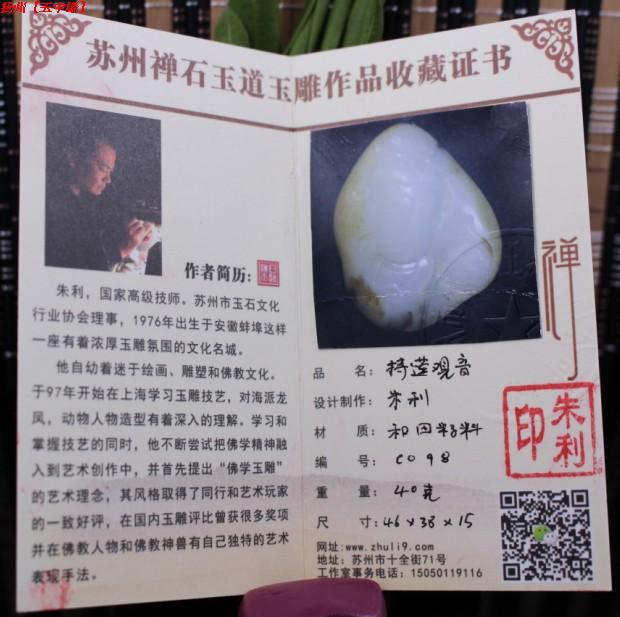 扬州【玉宇缘】
苏州禅石玉道玉雕作品收藏证书
作者简历:
朱利，国家高级技师。苏州市玉石文化
行业协会理事，1976年出生于安徽蚌埠这样
一座有着浓厚玉雕氛围的文化名城。
他自幼着迷于绘画、雕塑和佛教文化。
于97年开始在上海学习玉雕技艺，对海派龙
凤，动物人物造型有着深入的理解。学习和
掌握技艺的同时，他不断尝试把佛学精神融
入到艺术创作中，并首先提出“佛学玉雕”
的艺术理念，其风格取得了同行和艺术玩家
的一致好评，在国内玉雕评比曾获很多奖项
并在佛教人物和佛教神兽有自己独特的艺术
表现手法。
禅
品 名: 持莲观音
设计制作: 朱利
材 质: 和田籽料
编 号: C098
重 量: 40克
尺 寸: 46×38×15
朱利
印
网址:www.zhuli9.com
地址: 苏州市十全街71号
工作室事务电话: 15050119116